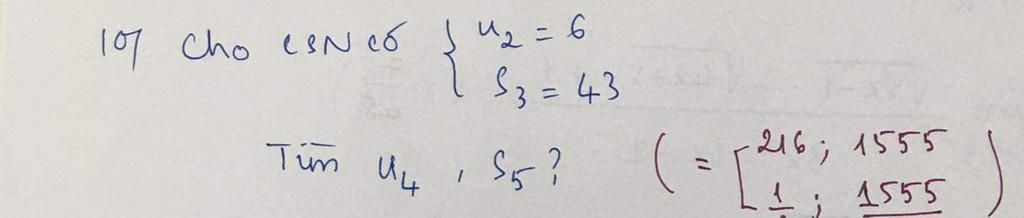 10/ Cho CSN có { u₂ = 6
S₃ = 43
Tìm u₄, S₅? ( = [ 216; 1555
1; 1555 )